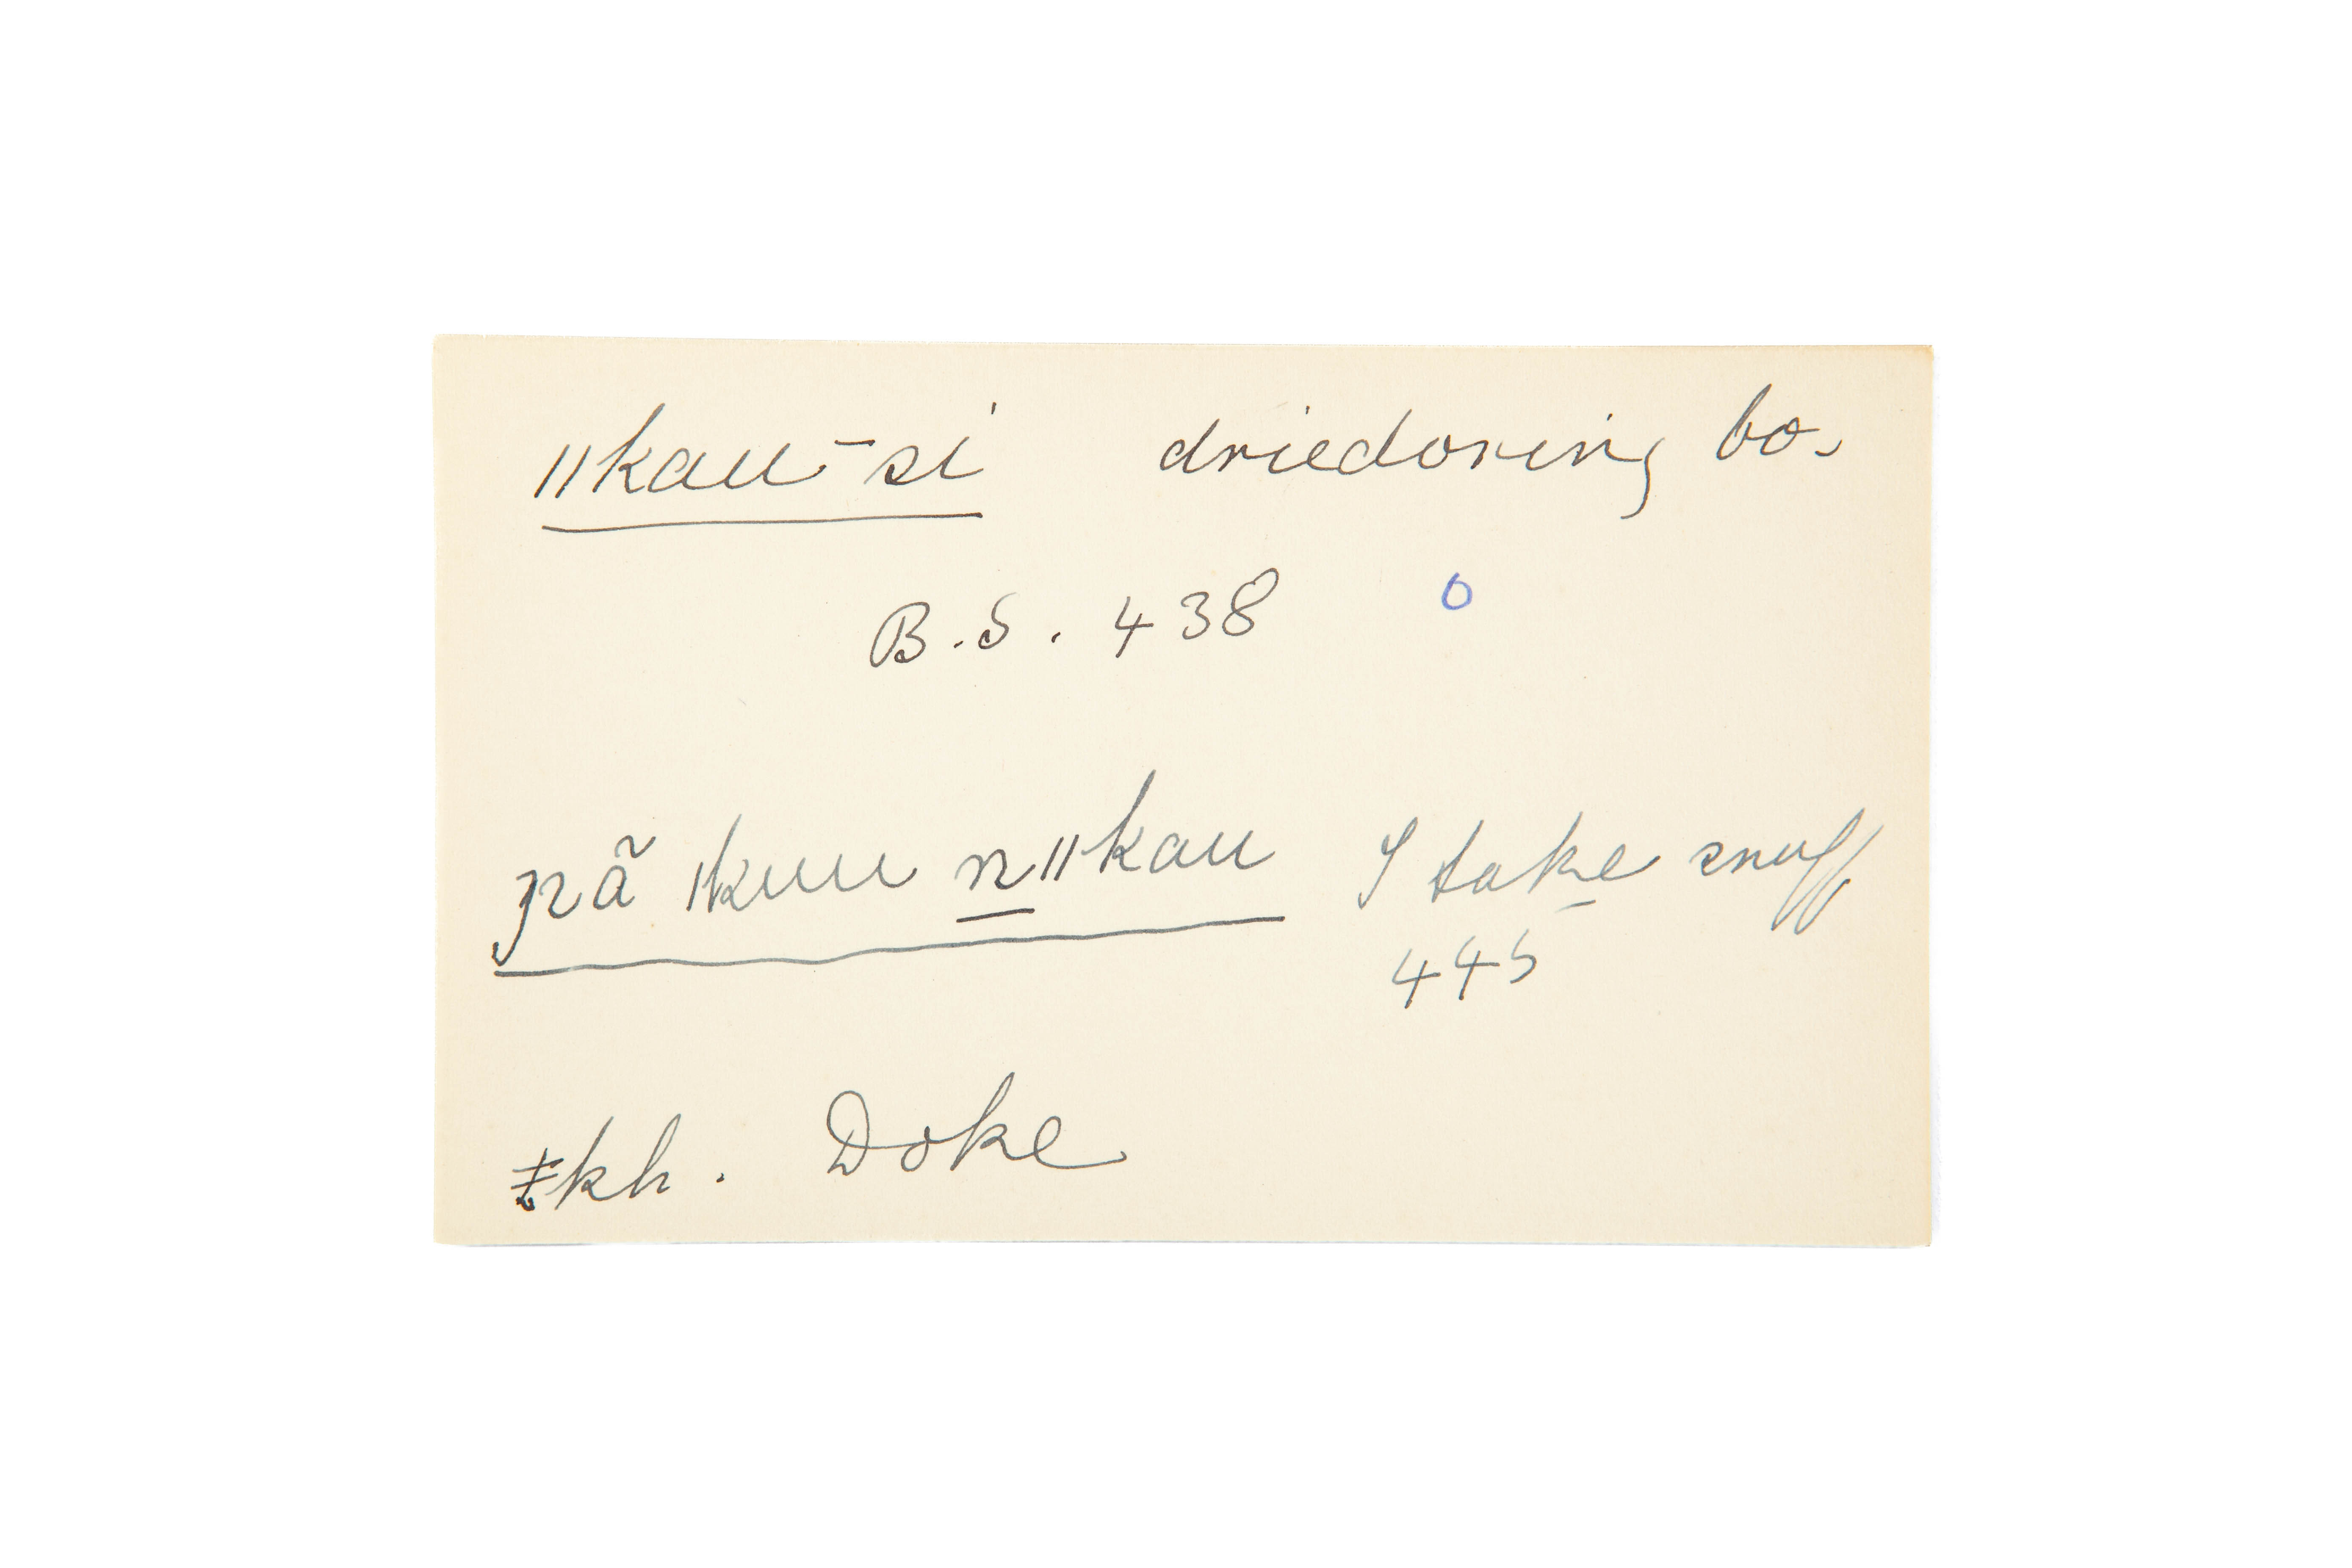 ǁkau-si driedoring bo.
B.S. 438 o
ɲã ǀkuu n̲ǁkau I take snuff
445
ǂkh. Doke